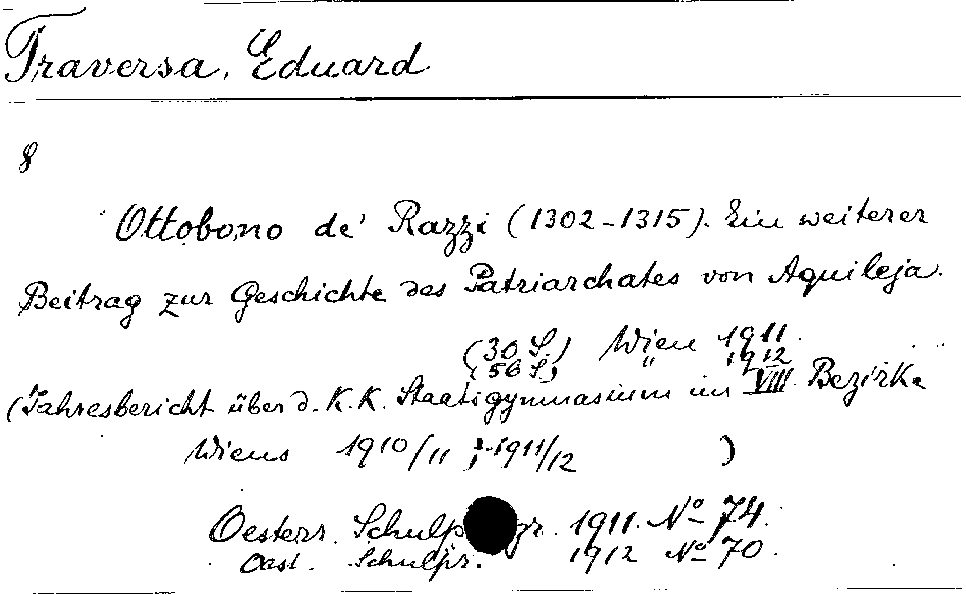 Traversa, Eduard
8
Ottobono de' Razzi (1302-1315). Ein weiterer
Beitrag zur Geschichte des Patriarchates von Aquileja.
(30 S.) Wien 1911.
(56 S.) " 1912
(Jahresbericht über d. K. K. Staatsgymnasium im VIII. Bezirke
Wiens 1910/11; 1911/12 )
Oesterr. 1911. No 74.
Oest. Schulpr. 1912 No 70.